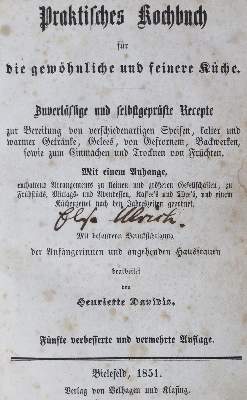 Praktisches Kochbuch
für
die gewöhnliche und feinere Küche.
Zuverlässige und selbstgeprüfte Recepte
zur Bereitung von verschiedenartigen Speisen, kalter und
warmer Getränke, Gelees, von Gefrornem, Backwerken,
sowie zum Einmachen und Trocknen von Früchten.
Mit einem Anhange,
enthaltend Arrangements zu kleinen und größeren Gesellschaften, zu
Frühstücks, Mittags- und Abendessen, Kaffee's und Thee's, und einem
Küchenzettel nach den Jahreszeiten geordnet.
Mit besonderer Berücksichtigung
der Anfängerinnen und angehenden Hausfrauen
bearbeitet
von
Henriette Davidis.
Fünfte verbesserte und vermehrte Auflage.
Bielefeld, 1851.
Verlag von Velhagen und Klasing.